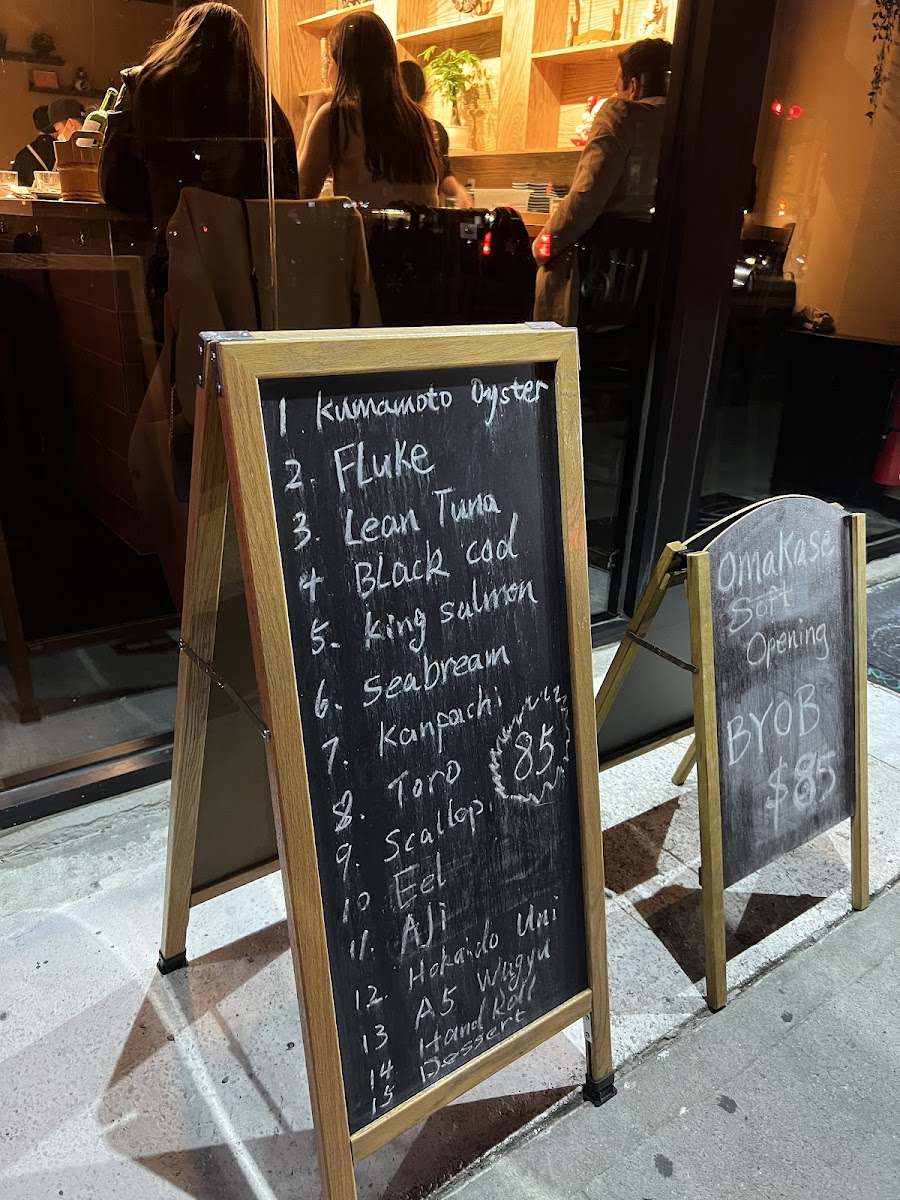 1 Kumamoto Oyster
2. Fluke
3. Lean Tuna
4 Black cod
5. king salmon
6. Seabream
7. Kanpachi
8. Toro
85
9. Scallop
10 Eel
11. Aji
12. Hokaido Uni
13 A5 Wagyu
14 Hand Roll
15 Dessert
Omakase
Soft
Opening
BYOB
$85